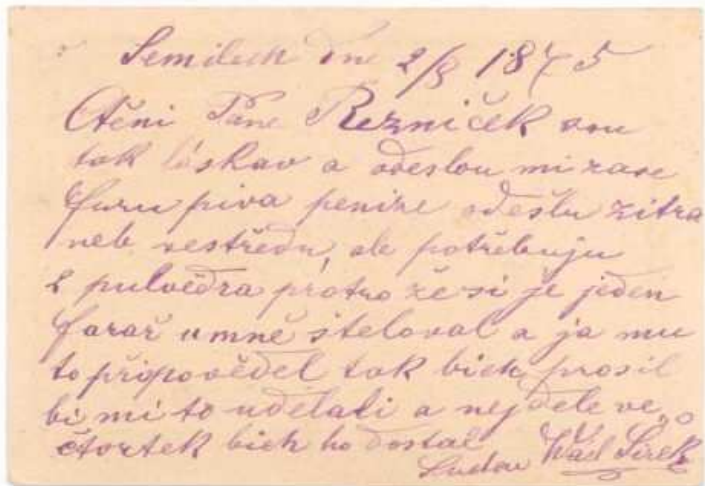 Semilech dne 2/8 1875
Ctěni Pane Rezniček sou
tak láskav a odeslou mi zase
furu piva penize odešlu zitra
neb vestředu, ale potřebuju
2 pulvědra protro že si je jeden
farař umně šteloval a ja mu
to připověděl tak bich prosil
bi mi to udělali a nejdele ve
čtvrtek bich ho dostal
Sirek